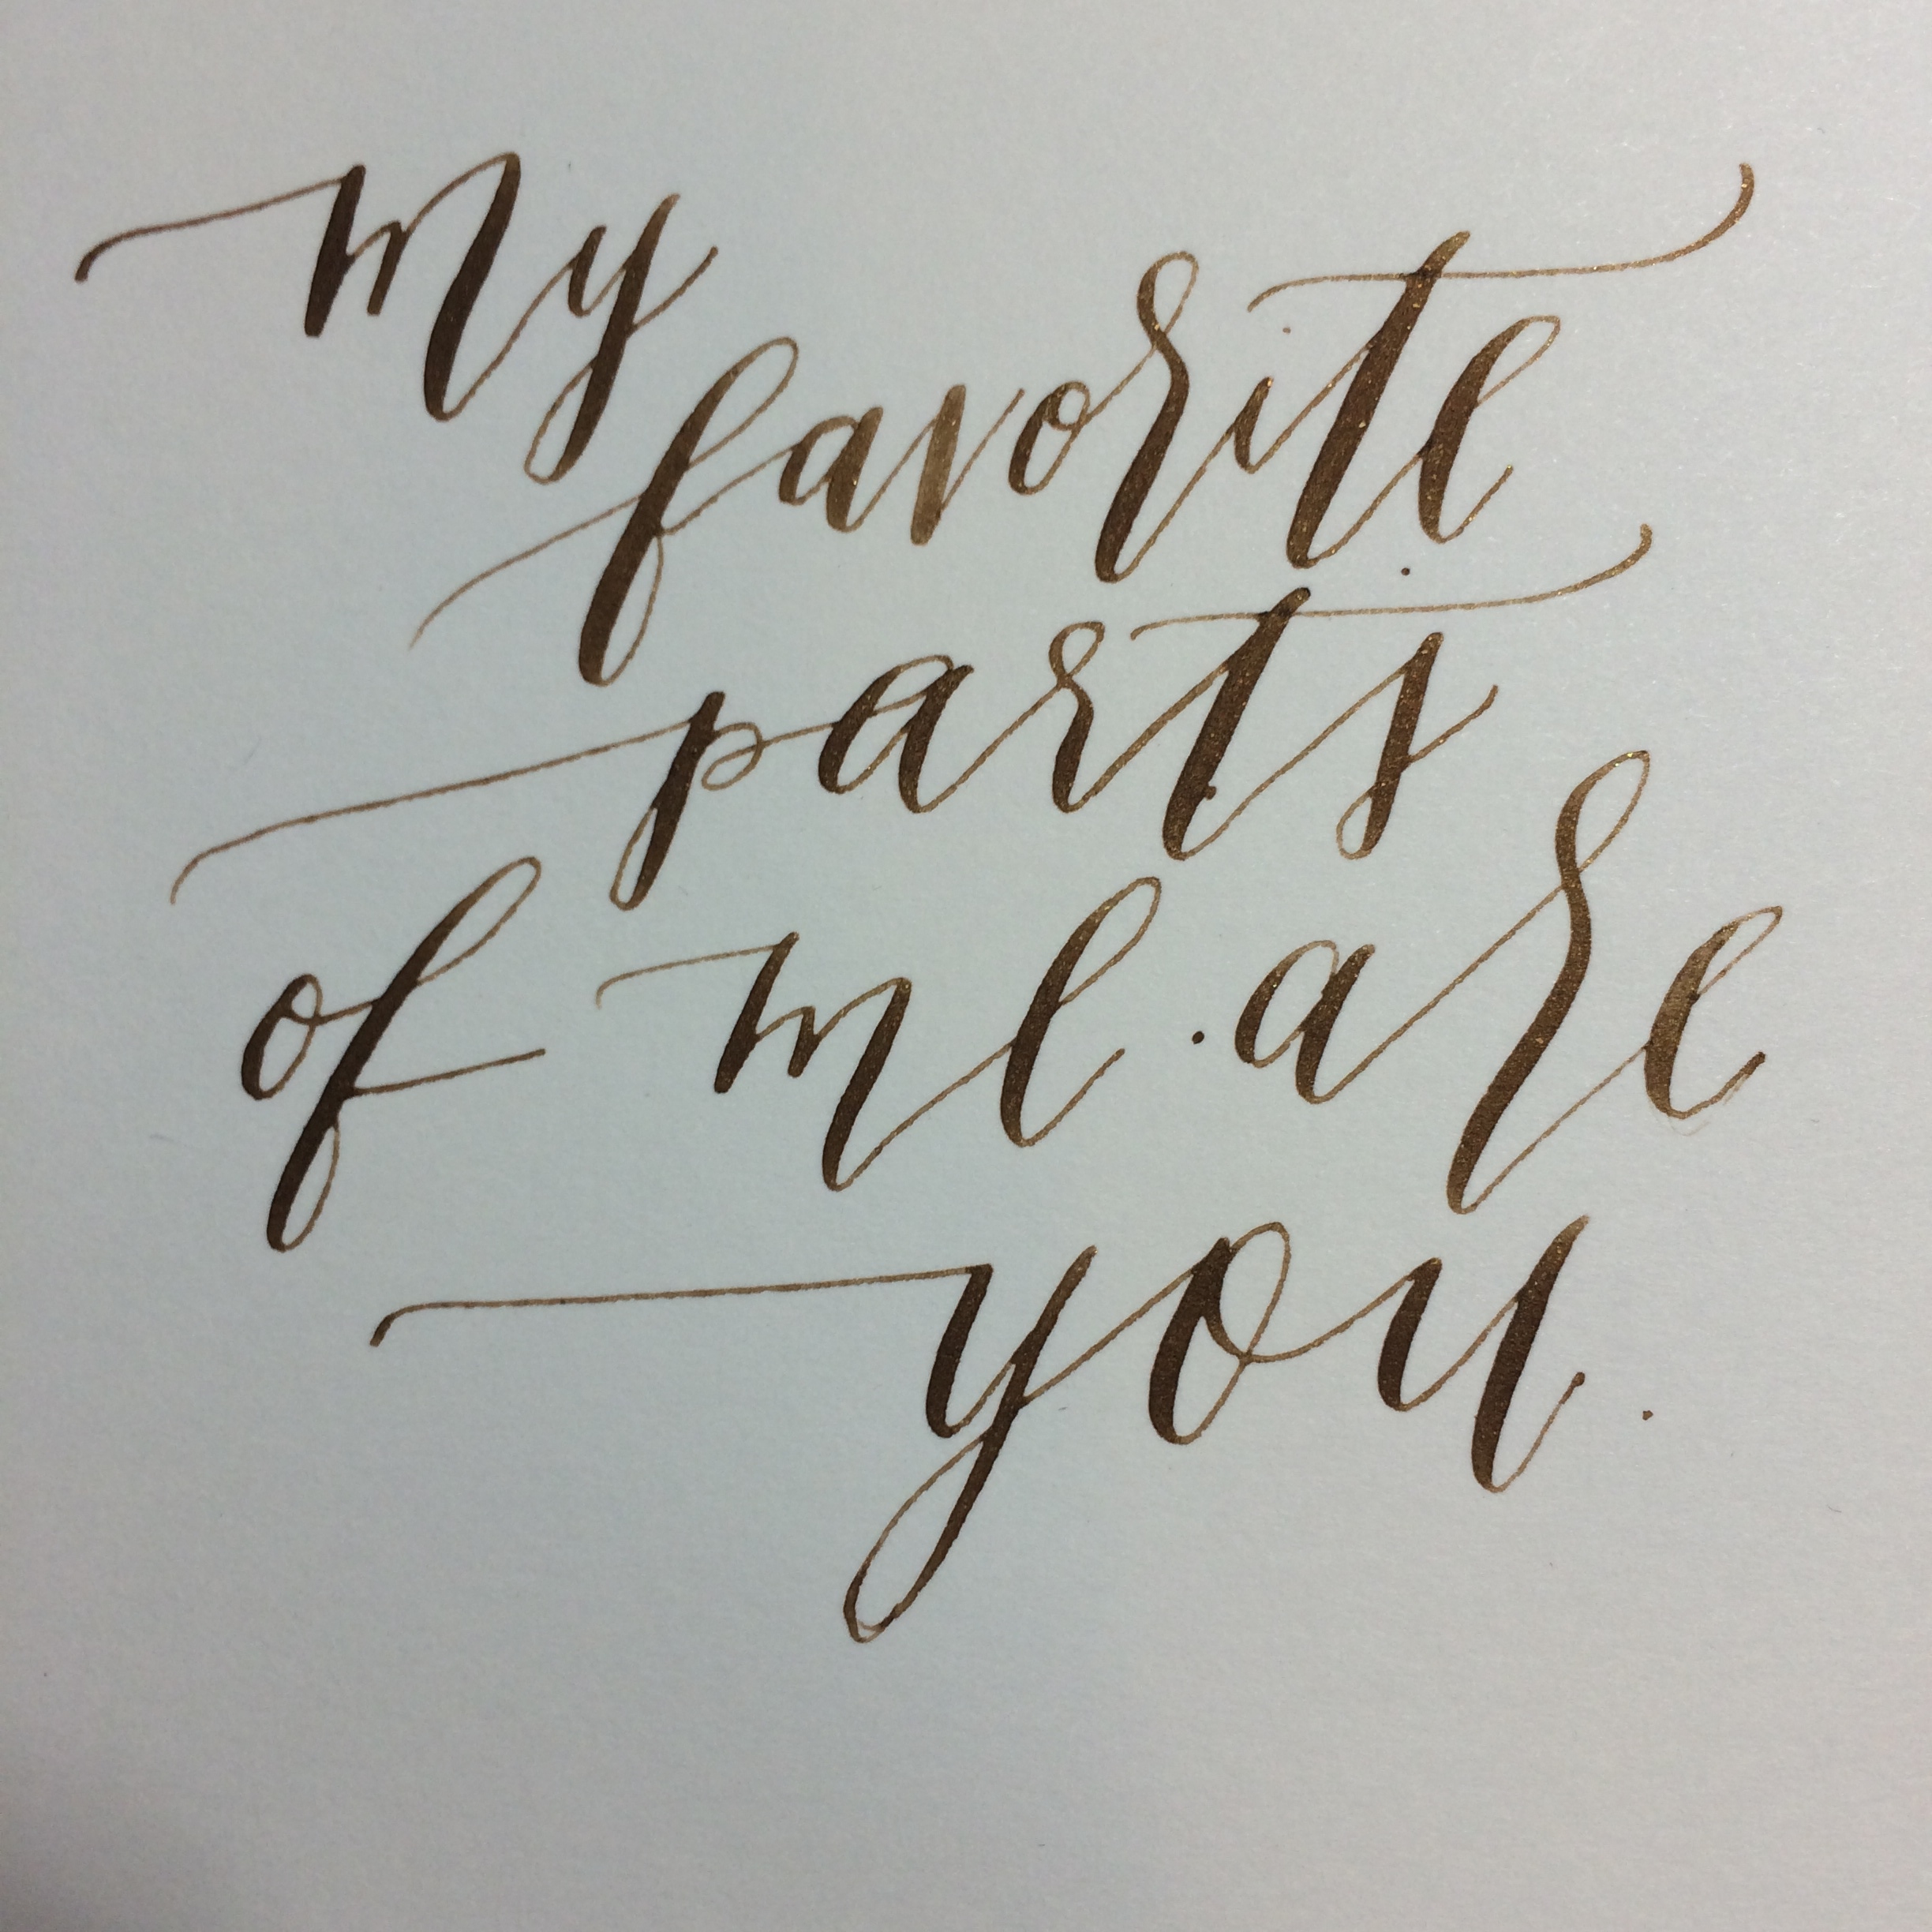 my
favorite
parts
of me are
you.